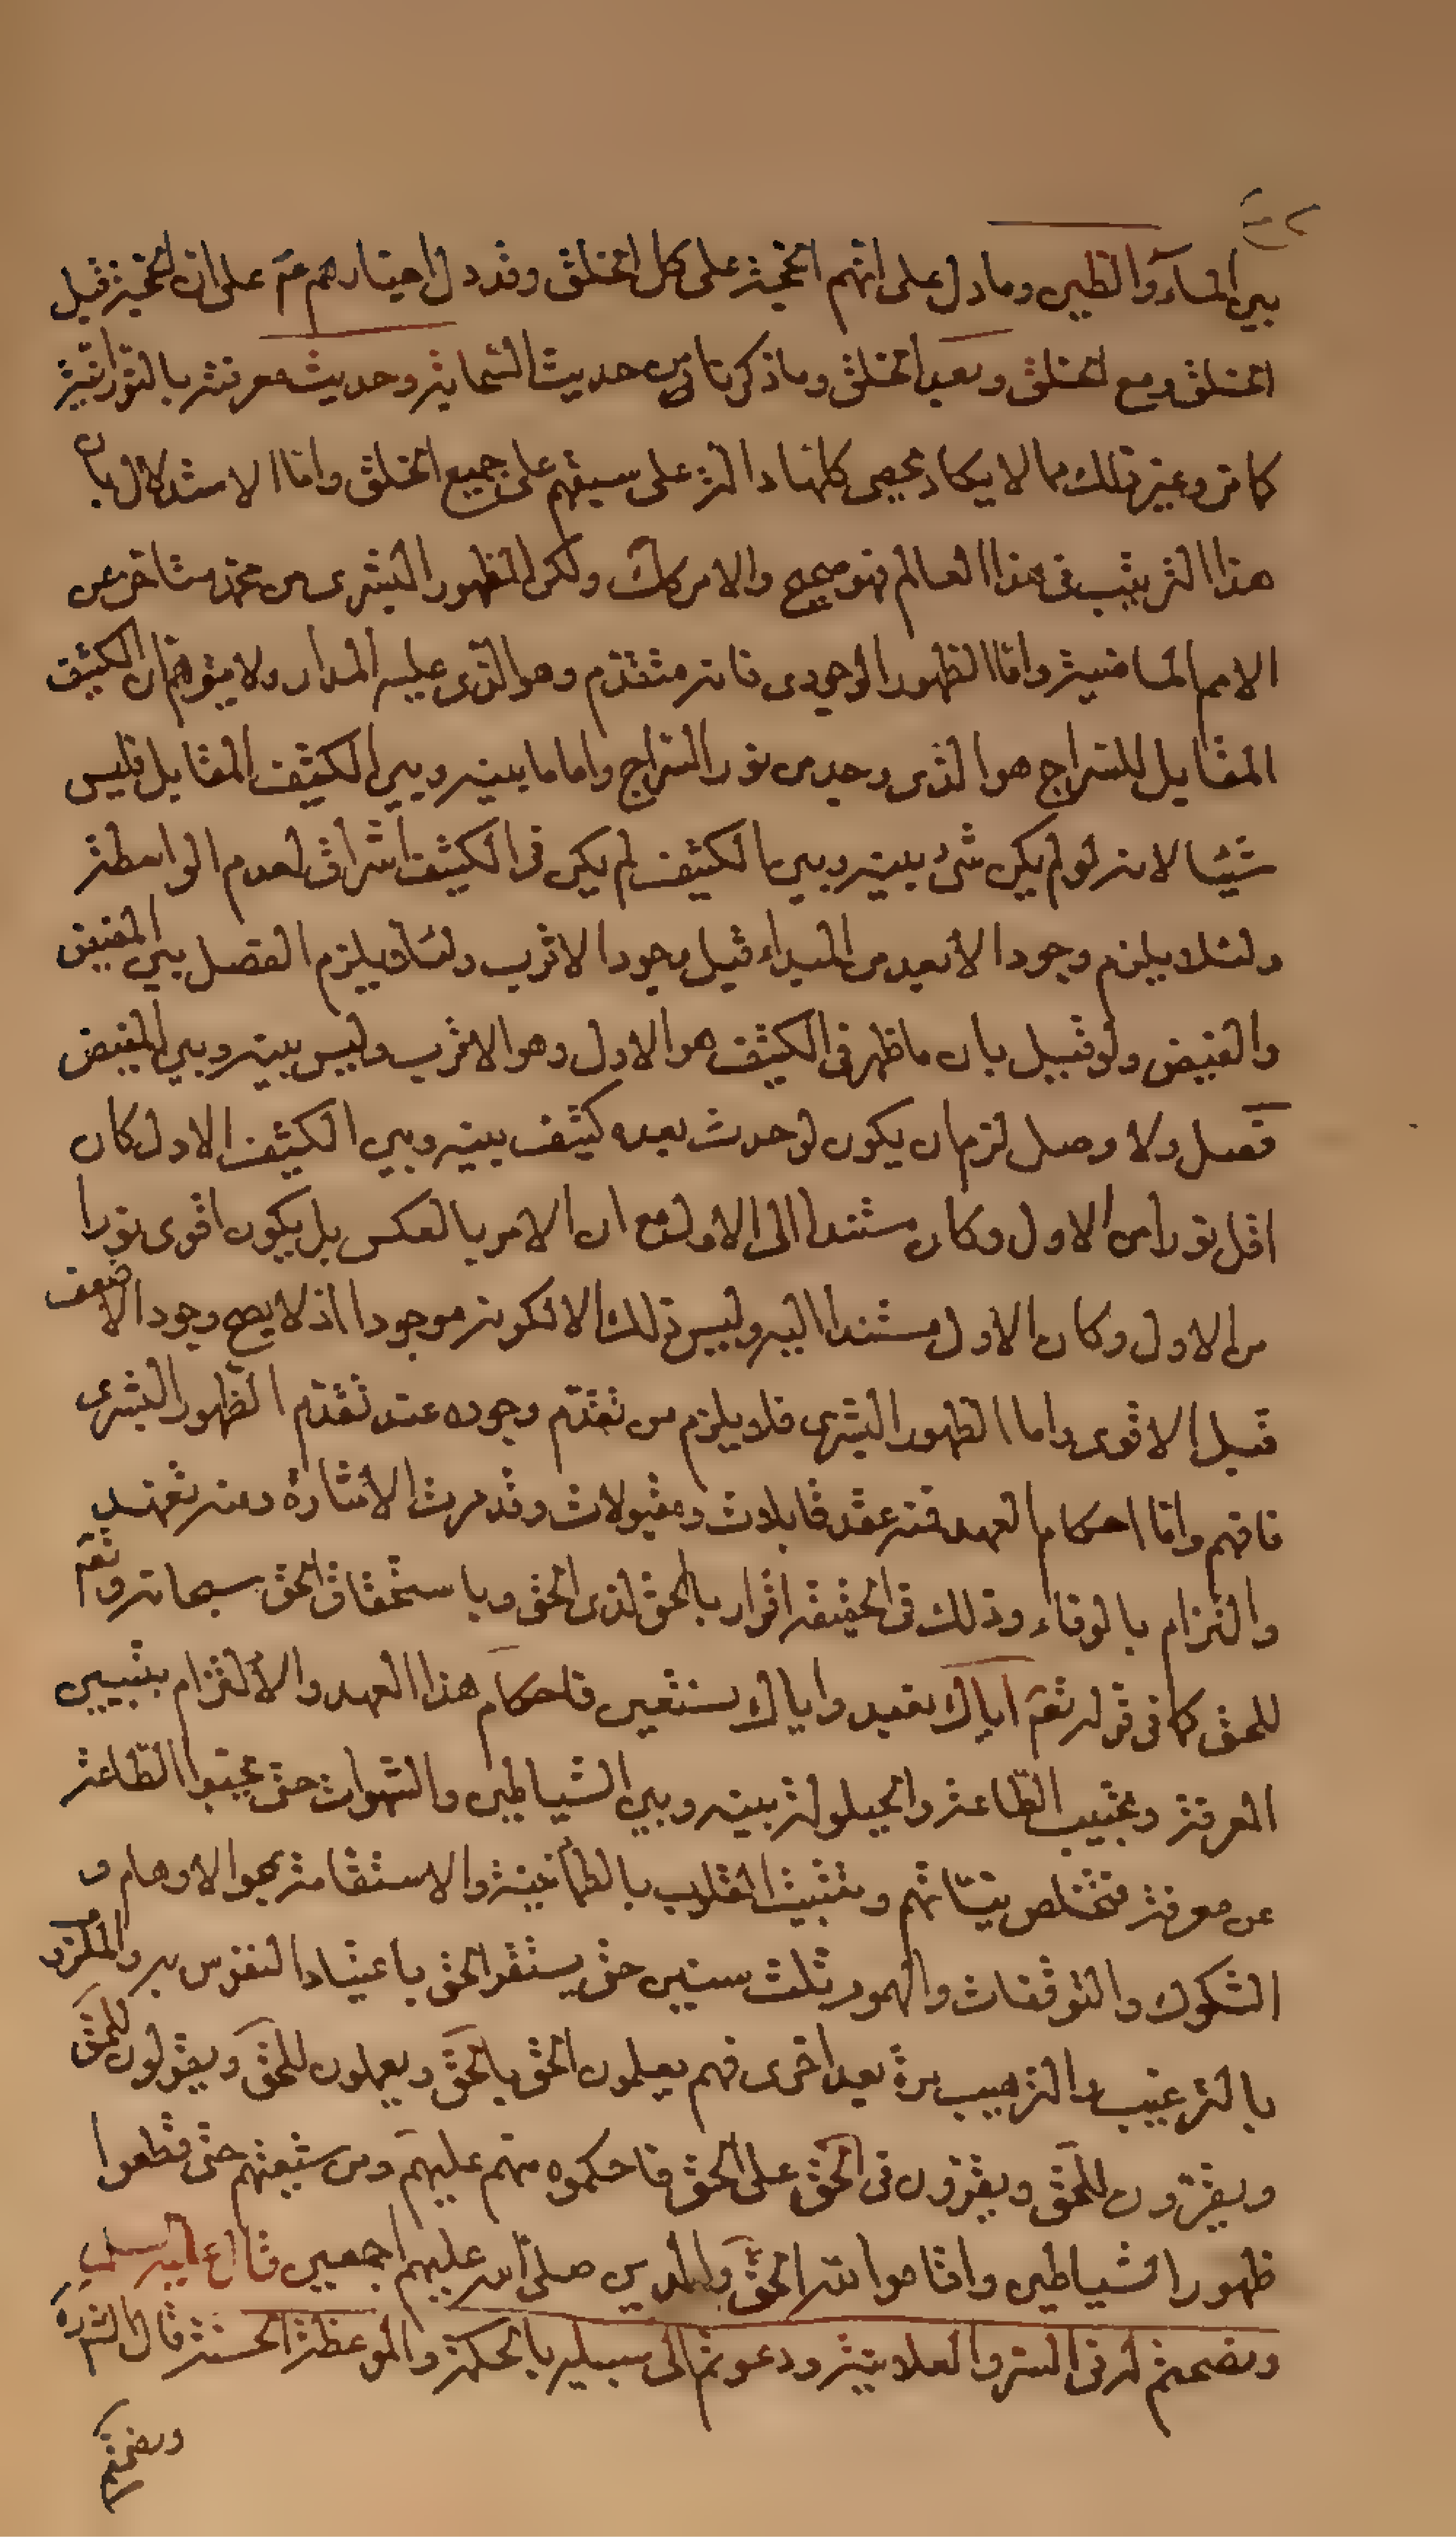 بين المآء والطين وما دل على انهم الحجة على كل الخلق وقد دل اخبارهم عۤم على ان الحجة قبل
الخلق ومع الخلق وبعد الخلق وما ذكرنا من حديث السحابة وحديث معرفته بالنورانية
كانه وغير ذلك مما لا يكاد يحصى كلها دالة على سبقهم على جميع الخلق وامّا الاستدلال بان
هذا الترتيب فى هذا العالم فهو صحيح والامر كك ولكن الظهور البشرى من محمد متاخر عن
الامم الماضية وامّا الظهور الوجودى فانه متقدم وهو الذى عليه المدار ولا يتوهم ان الكثيف
المقابل للسراج هو الذى وجد من نور السّراج واما ما بينه وبين الكثيف المقابل فليس
شيئا لانه لو لم يكن شئ بينه وبين الكثيف لم يكن فى الكثيف اشراق لعدم الواسطة
ولئلا يلزم وجود الأبعد من المبداء قبل وجود الاقرب ولئلا يلزم الفصل بين المفيض
والفيض ولو قيل بان ما ظهر فى الكثيف هو الاول وهو الاقرب وليس بينه وبين المفيض
فصل ولا وصل لزم ان يكون لو حدث بعده كثيف بينه وبين الكثيف الاول كان
اقل نورا من الاول وكان مستندا الى الاول مع ان الامر بالعكس بل يكون اقوى نورا
من الاول وكان الاول مستندا اليه وليس ذلك الا لكونه موجودا اذ لا يصح وجود الاضعف
قبل الاقوى واما الظهور البشرى فلا يلزم من تقدّم وجوده عنه تقدّم الظهور البشرى
فافهم وامّا احكام العهد فنه عقد قابلات ومقبولات وقد مرت الاشارة ومنه تعهد
والتزام بالوفاء وذلك فى الحقيقه اقرار بالحق لذى الحق وباستحقاق الحق سبحانه وتعۤ
للحق كما فى قوله تعۤ اياك نعبد واياك نستعين فاحكام هذا العهد والالتزام بتبيين
المعرفة وتحبيب الطاعة والحيلولة بينه وبين الشياطين والشهوات حتى يحبوا الطاعة
عن معرفة فتخلص نيّاتهم وبتثبيت القلوب بالطمأنينة والاستقامة بمحو الاوهام و
الشكوك والتوقفات والهمود ثلث سنين حتى يستقر الحق باعتياد النفوس به والملكزم
بالترغيب والترهيب مرة بعد اخرى فهم يعلمون الحق بالحق ويعملون للحق ويقولون للحق
ويقرّون للحق ويقرّون فى الحق على الحق فاحكموه منهم عليهم ومن شيعتهم حتى قطعوا
ظهور الشياطين واقاموا لله الحق والدين صلى الله عليهم اجمعين قال ع ليه السلام
ونصحتم له فى السّر والعلانية ودعوتم الى سبيله بالحكمة والموعظة الحسنة قال الشّ ره
ونصحتم